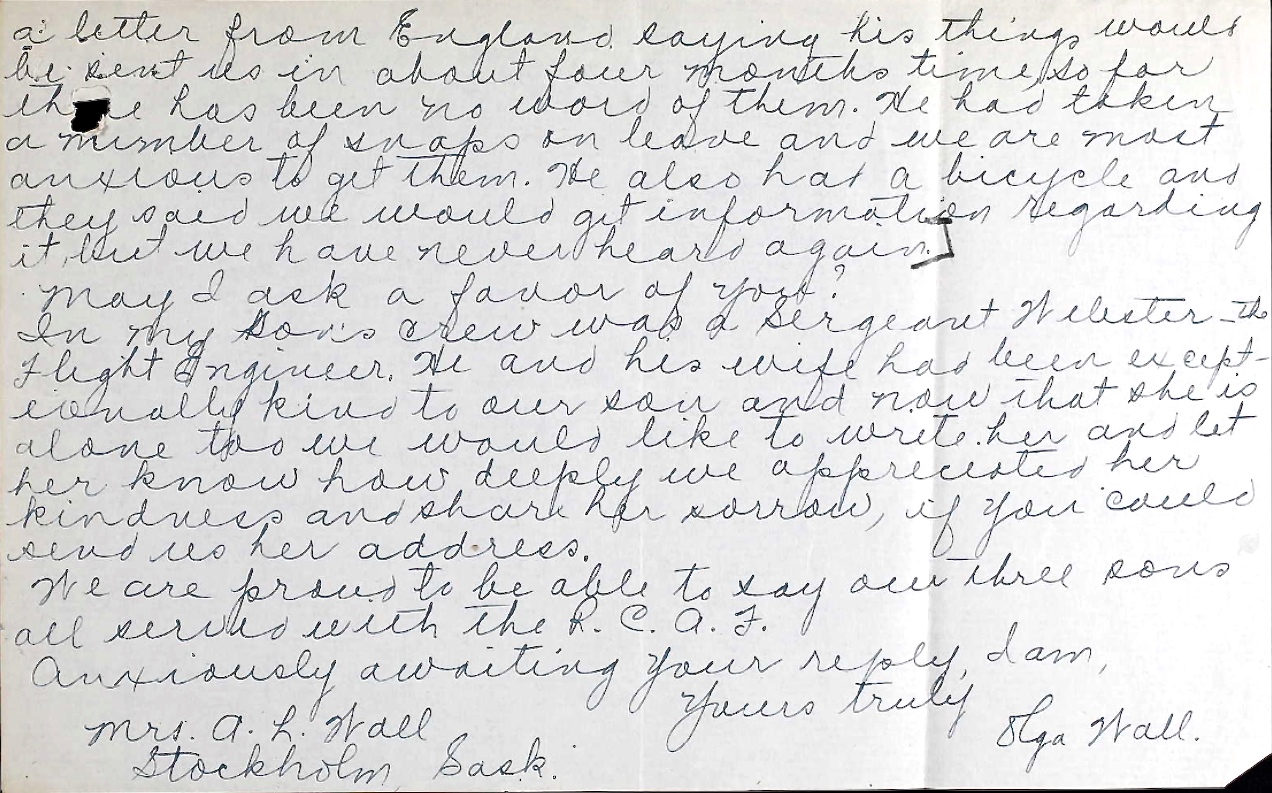 a letter from England saying his things would
be sent us in about four months time, so far
th e has been no word of them. He had taken
a number of snaps on leave and we are most
anxious to get them. He also had a bicycle and
they said we would get information regarding
it, but we have never heard again.]
May I ask a favor of you?
In my son's crew was a Sergeant Webster – the
Flight Engineer. He and his wife had been except-
ionally kind to our son and now that she is
alone too we would like to write her and let
her know how deeply we appreciated her
kindness and share her sorrow, if you could
send us her address.
We are proud to be able to say our three sons
all served with the R. C. A. F.
Anxiously awaiting your reply, I am,
Yours truly
Olga Wall.
Mrs. A. L. Wall
Stockholm, Sask.